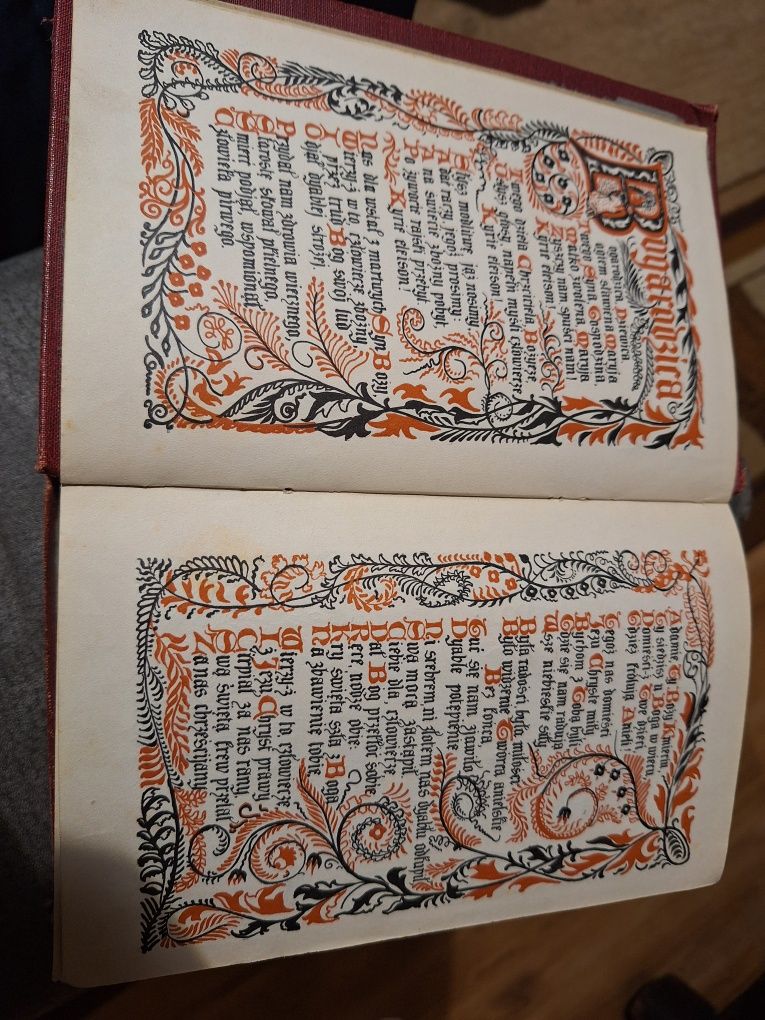 Bogarodzica
Dziewica
Bogiem sławiena Maryja
Twego Syna Gospodzina
Matko zwolena Maryja
Zyszczy nam spuści nam
Kyrie eleison.
Twego dzieła Chrzciciela, Bożycze,
Usłysz głosy napełń myśli człowiecze
Słysz modlitwę jąż nosimy
A dać raczy jegoż prosimy
A na świecie zbożny pobyt
Po żywocie rajski przebyt
Kyrie eleison.
Nas dla wstał z martwych Syn Boży,
Wierzyż w to człowiecze zbożny
Iż przez trud Bog swój lud
Odjął dyablej stroży,
Przydał nam zdrowia wiecznego,
Starostę skował pkielnego,
Śmierć podjął wspomionął
Człowieka pirwego.
Adamie, Ty Boży Kmieciu
Ty siedzisz u Boga w wiecu,
Domieściż Twe dzieci
Gdzież królują Anieli!
Tegoż nas domieści
Jezu Chryste miły
Byśchom z Tobą byli
Gdzie się nam radują
Wsze niebieskie siły
Była radość była miłość
Było widzenie Tworca anielskie
Bez końca
Tuć się nam zjawiło
Dyable potępienie
Ni srebrem ni złotem nas dyabłu odkupił
Swą mocą zastąpił
Ciebie dla, człowiecze
Dał Bog przekłóć sobie
Ręce, nodze obie
Kry święta szła z Boga
Na zbawienie tobie
Wierzyż w to, człowiecze
Iż Jezu Chryst prawy
Cirpiał za nas rany
Swą świętą krew przelał
Za nas chrześcijany